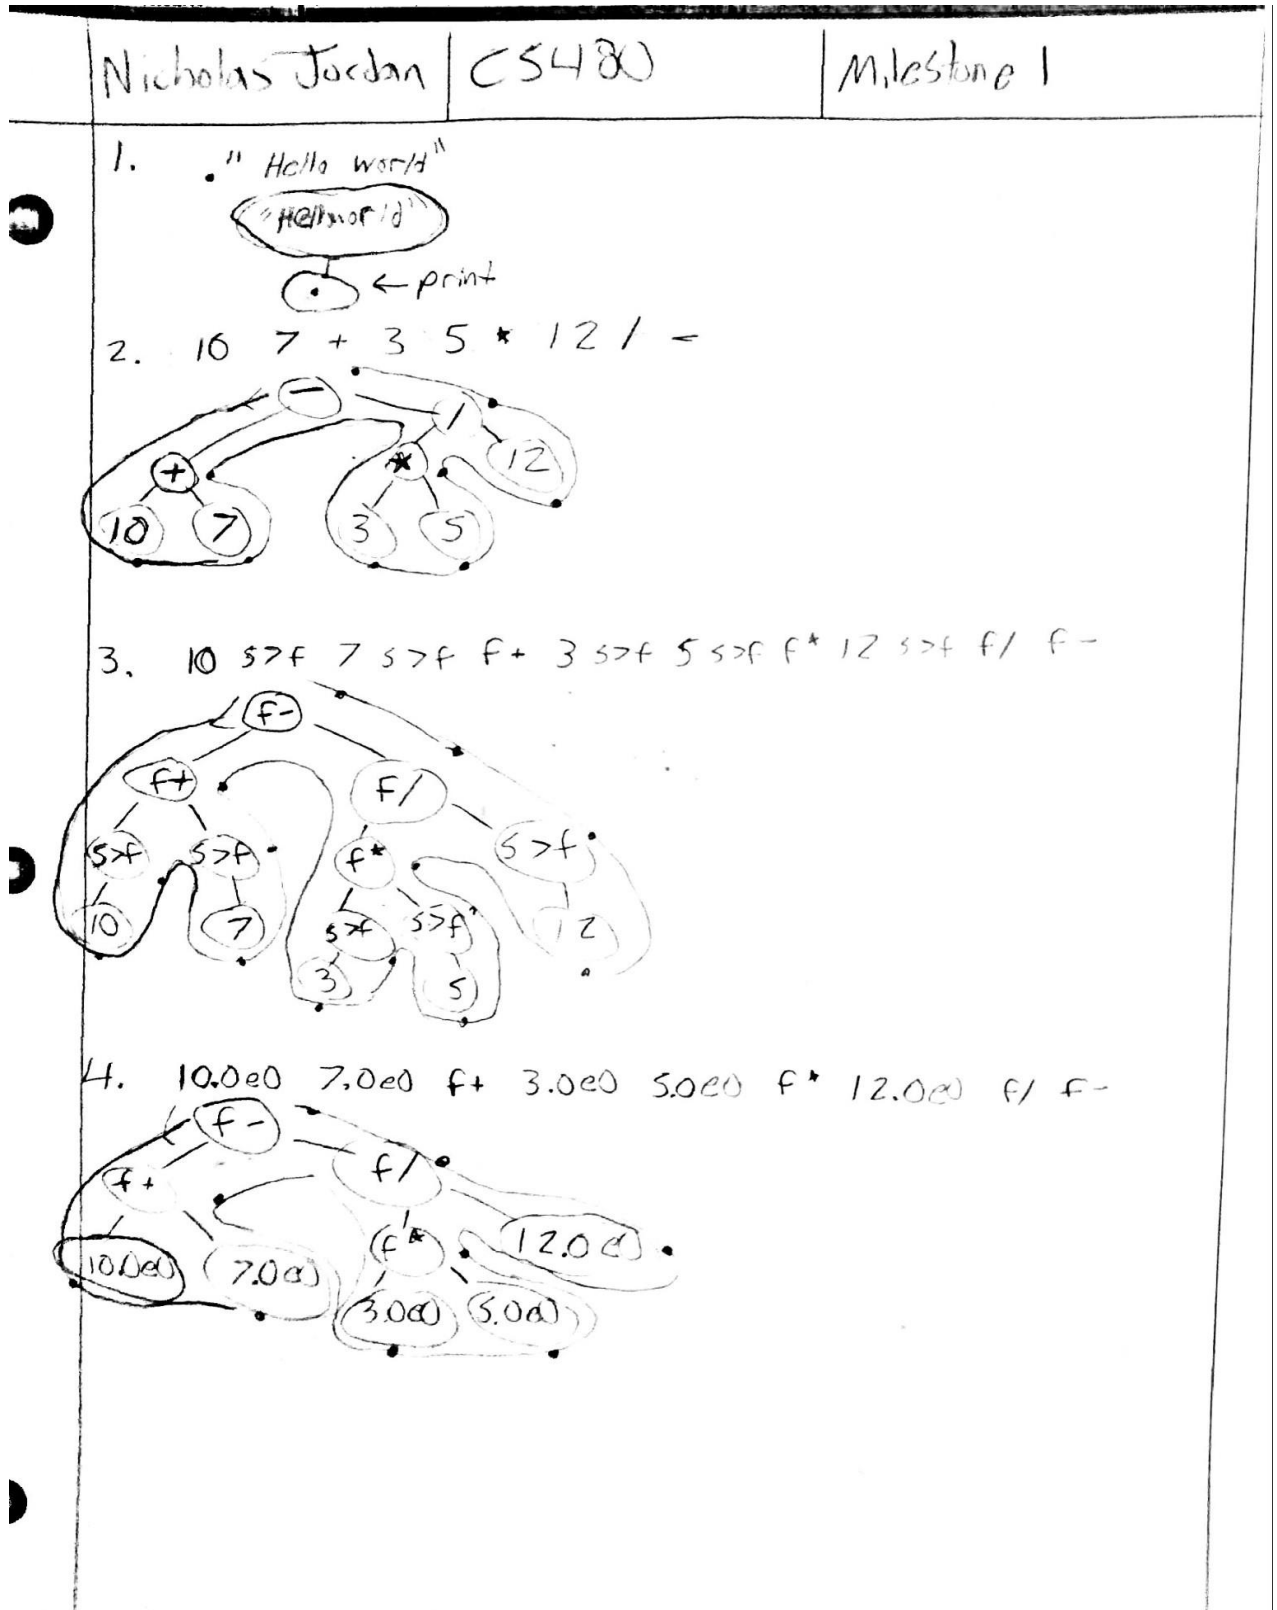 Nicholas Jordan CS480 Milestone 1
1. ." Hello world"
"Helloworld"
. ← print
2. 10 7 + 3 5 * 12 / -
-
/
+ * 12
10 7 3 5
3. 10 s>f 7 s>f f+ 3 s>f 5 s>f f* 12 s>f f/ f-
f-
f+ f/
s>f s>f f* s>f
10 7 s>f s>f 12
3 5
4. 10.0e0 7.0e0 f+ 3.0e0 5.0e0 f* 12.0e0 f/ f-
f-
f+ f/
10.0e0 7.0e0 f* 12.0e0
3.0e0 5.0e0